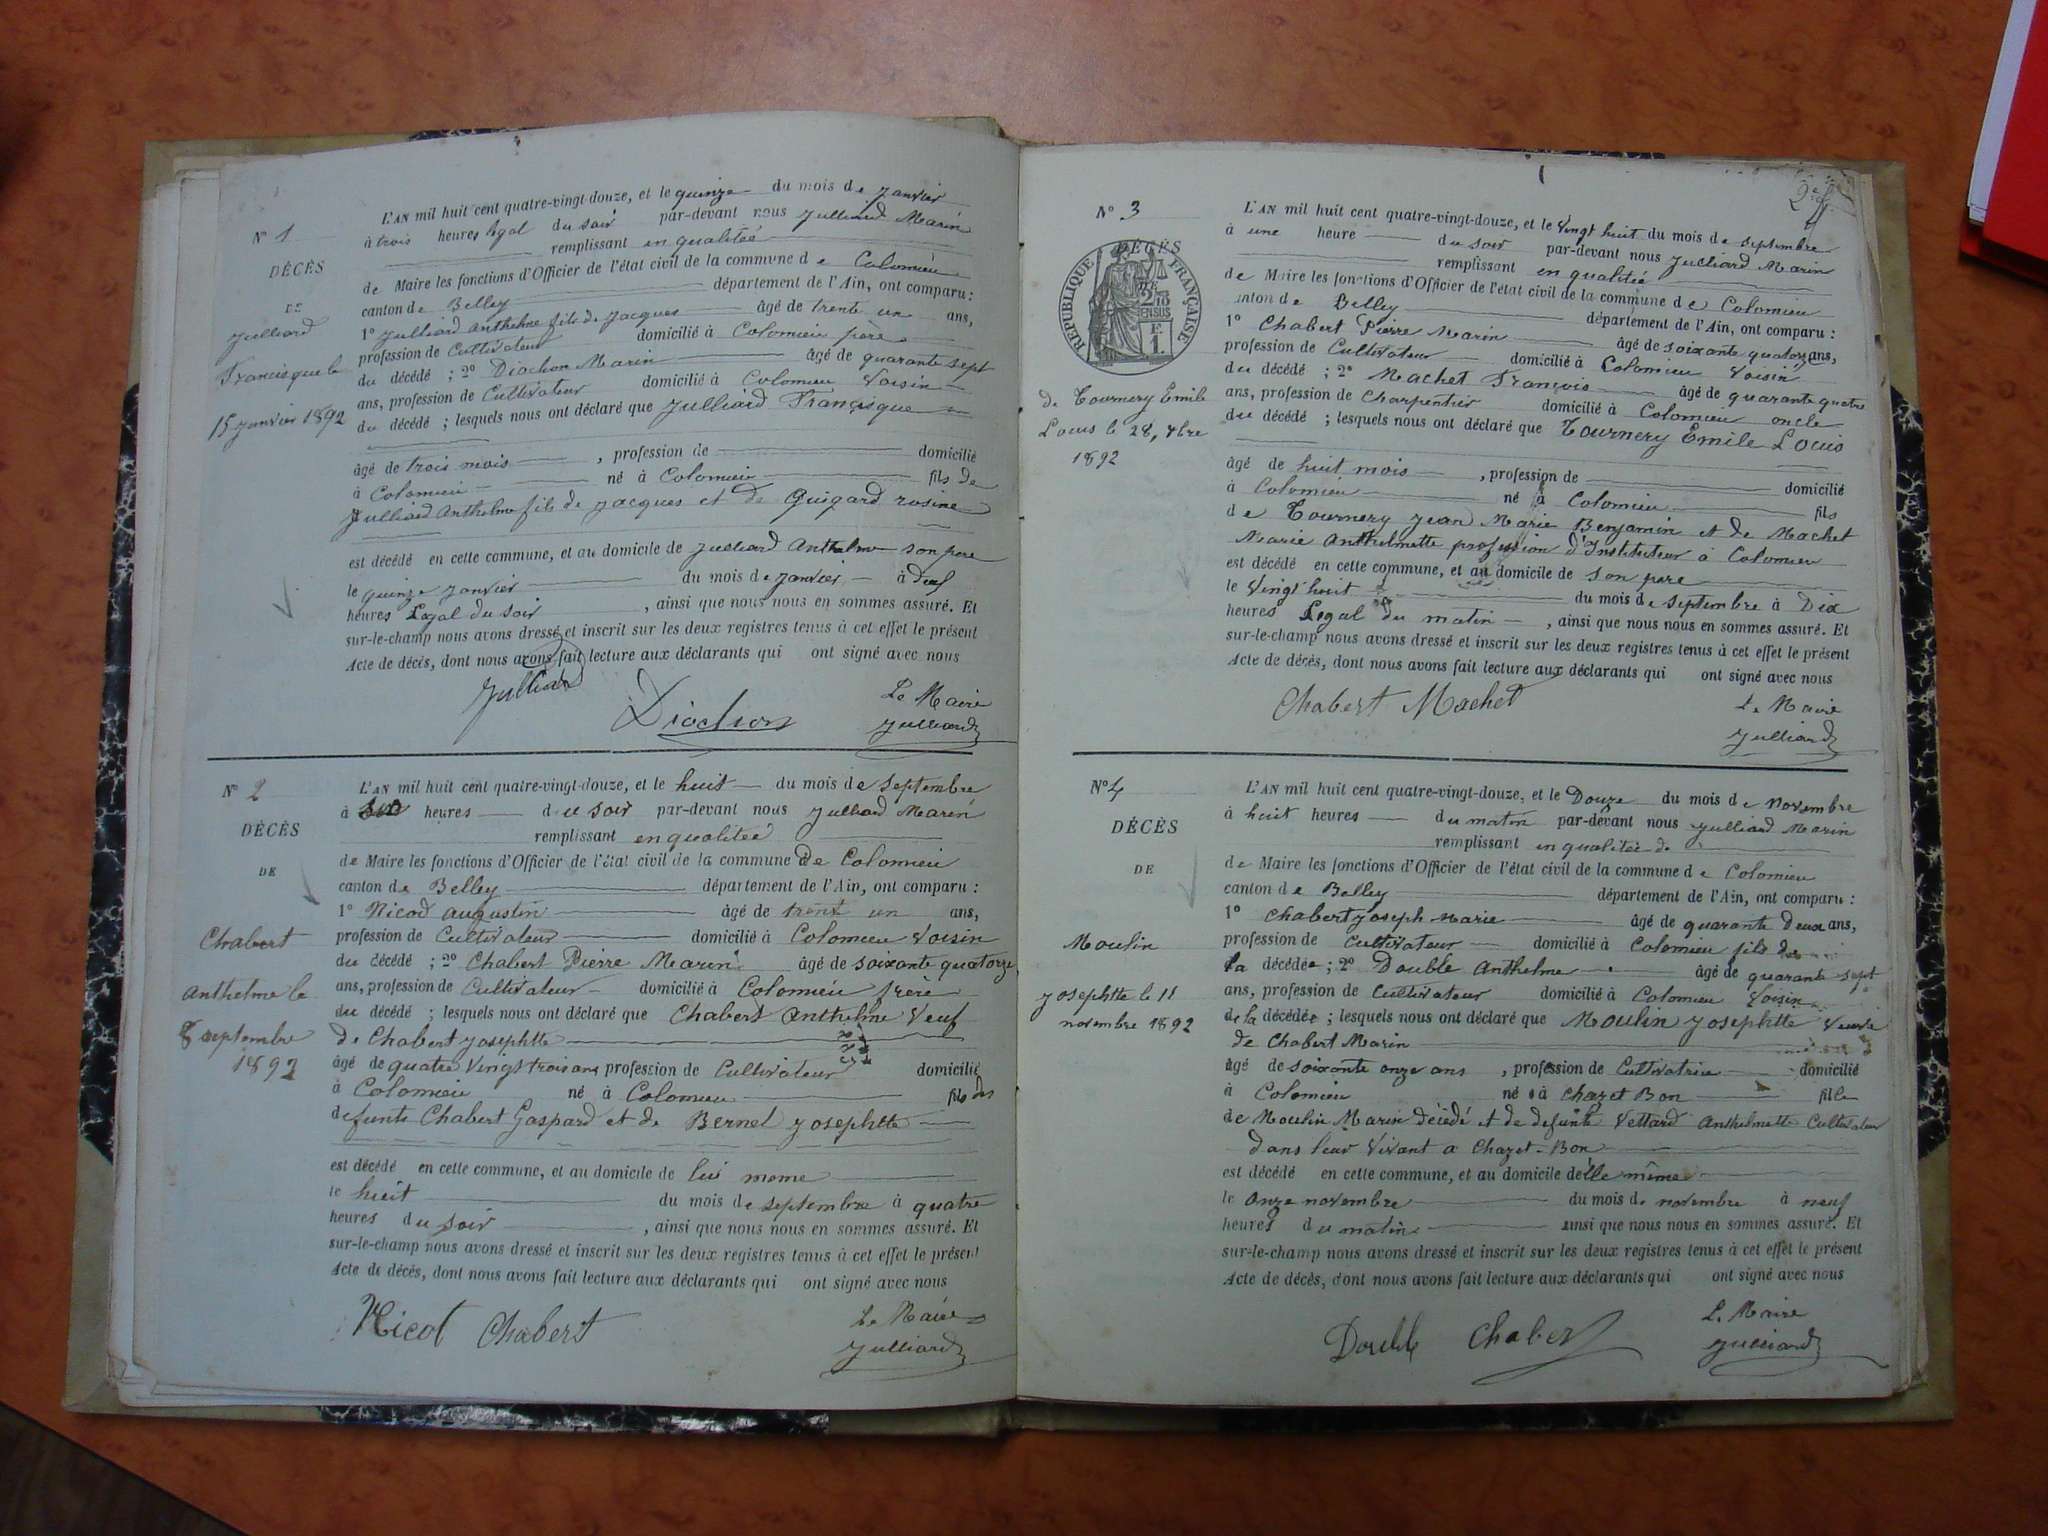 N° 1
DÉCÈS
DE
Julliard
Francisque le
15 janvier 1892
L'AN mil huit cent quatre-vingt-douze, et le quinze du mois de janvier
à trois heures légal du soir par-devant nous Julliard Marin
remplissant en qualitée
de Maire les fonctions d'Officier de l'état civil de la commune de Colomieu
canton de Belley département de l'Ain, ont comparu :
1° Julliard Anthelme fils de Jacques âgé de trente un ans,
profession de Cultivateur domicilié à Colomieu père
du décédé ; 2° Diochon Marin âgé de quarante sept
ans, profession de Cultivateur domicilié à Colomieu Voisin
du décédé ; lesquels nous ont déclaré que Julliard Françisque
âgé de trois mois , profession de domicilié
à Colomieu né à Colomieu fils de
Julliard Anthelme fils de Jacques et de Guigard rosine
est décédé en cette commune, et au domicile de Julliard Anthelme son père
le quinze janvier du mois de janvier à deux
heures Légal du soir , ainsi que nous nous en sommes assuré. Et
sur-le-champ nous avons dressé et inscrit sur les deux registres tenus à cet effet le présent
Acte de décès, dont nous avons fait lecture aux déclarants qui ont signé avec nous
Julliard Diochon Le Maire
Julliard
N° 2
DÉCÈS
DE
Chabert
Anthelme le
8 septembre
1892
L'AN mil huit cent quatre-vingt-douze, et le huit du mois de septembre
à heures du soir par-devant nous Julliard Marin
remplissant en qualiteé
de Maire les fonctions d'Officier de l'état civil de la commune de Colomieu
canton de Belley département de l'Ain, ont comparu :
1° Nicod augustin âgé de trent un ans,
profession de Cultivateur domicilié à Colomieu Voisin
du décédé ; 2° Chabert Pierre Marin âgé de soixante quatorze
ans, profession de Cultivateur domicilié à Colomieu frère
du décédé ; lesquels nous ont déclaré que Chabert Anthelme Veuf
de Chabert Josephtte
âgé de quatre Vingt trois ans profession de Cultivateur domicilié
à Colomieu né à Colomieu fils des
defunts Chabert Gaspard et de Bernel Josephtte
est décédé en cette commune, et au domicile de lui meme
le huit du mois de septembre à quatre
heures du soir , ainsi que nous nous en sommes assuré. Et
sur-le-champ nous avons dressé et inscrit sur les deux registres tenus à cet effet le présent
Acte de décès, dont nous avons fait lecture aux déclarants qui ont signé avec nous
Nicot Chabert Le Maire
Julliard
N° 3
DÉCÈS
RÉPUBLIQUE FRANÇAISE
de Tournery Emile
Louis le 28, 7bre
1892
L'AN mil huit cent quatre-vingt-douze, et le Vingt huit du mois de septembre
à une heure du soir par-devant nous Julliard Marin
remplissant en qualiteé
de Maire les fonctions d'Officier de l'état civil de la commune de Colomieu
canton de Belley département de l'Ain, ont comparu :
1° Chabert Pierre Marin âgé de soixante quatorze ans,
profession de Cultivateur domicilié à Colomieu Voisin
du décédé ; 2° Machet François âgé de quarante quatre
ans, profession de Charpentier domicilié à Colomieu oncle
du décédé ; lesquels nous ont déclaré que Tournery Emile Louis
âgé de huit mois , profession de domicilié
à Colomieu né à Colomieu fils
de Tournery Jean Marie Benjamin et de Machet
Marie Anthelmette profession d'Instituteur à Colomieu
est décédé en cette commune, et au domicile de son pere
le Vingt huit du mois de septembre à Dix
heures Légal du matin , ainsi que nous nous en sommes assuré. Et
sur-le-champ nous avons dressé et inscrit sur les deux registres tenus à cet effet le présent
Acte de décès, dont nous avons fait lecture aux déclarants qui ont signé avec nous
Chabert Machet Le Maire
Julliard
N° 4
DÉCÈS
DE
Moulin
Josephtte le 11
novembre 1892
L'AN mil huit cent quatre-vingt-douze, et le Douze du mois de novembre
à huit heures du matin par-devant nous Julliard Marin
remplissant en qualiteé de
de Maire les fonctions d'Officier de l'état civil de la commune de Colomieu
canton de Belley département de l'Ain, ont comparu :
1° Chabert Joseph Marie âgé de quarante deux ans,
profession de Cultivateur domicilié à Colomieu fils de
la décédée ; 2° Double Anthelme âgé de quarante sept
ans, profession de Cultivateur domicilié à Colomieu Voisin
de la décédée ; lesquels nous ont déclaré que Moulin Josephtte Veuve
de Chabert Marin
âgé de soixante onze ans , profession de Cultivatrice domicilié
à Colomieu né à Chazet Bon fille
de Moulin Marin décédé et de defunte Vettard Anthelmette Cultivateur
dans leur Vivant a Chazet-Bon
est décédé en cette commune, et au domicile delle même
le onze novembre du mois de novembre à neuf
heures du matin ainsi que nous nous en sommes assuré. Et
sur-le-champ nous avons dressé et inscrit sur les deux registres tenus à cet effet le présent
Acte de décès, dont nous avons fait lecture aux déclarants qui ont signé avec nous
Double Chabert Le Maire
Julliard